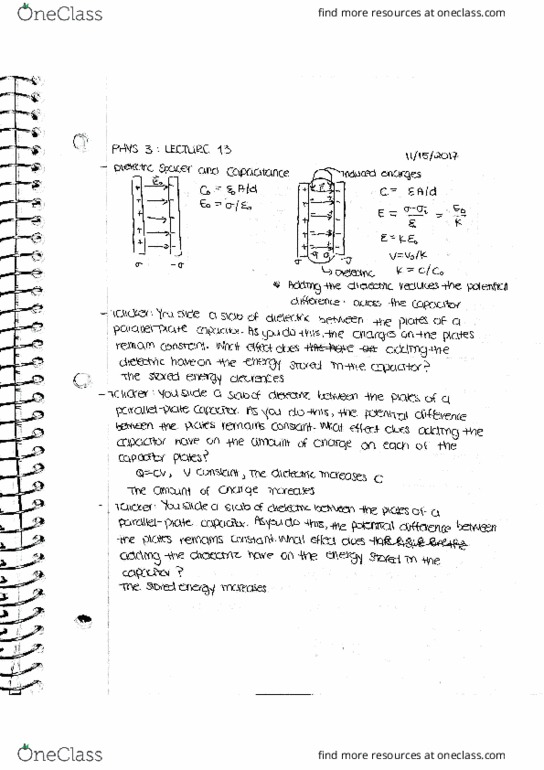 OneClass
find more resources at oneclass.com
PHYS 3 : LECTURE 13
11/15/2017
- Dielectric Spacer and Capacitance
induced charges
E₀
C₀ = ε₀ A/d
E₀ = σ/ε₀
C = εA/d
E = σ-σi/ε = E₀/K
ε = Kε₀
V=V₀/K
K = C/C₀
σ -σ
σ -σ
Dielectric
Adding the dielectric reduces the potential
difference across the capacitor
- iClicker: You slide a slab of dielectric between the plates of a
parallel-plate capacitor. As you do this, the charges on the plates
remain constant. What effect does adding the
dielectric have on the energy stored in the capacitor?
The stored energy decreases
- iClicker: You slide a slab of dielectric between the plates of a
parallel-plate capacitor. As you do this, the potential difference
between the plates remains constant. What effect does adding the
capacitor have on the amount of charge on each of the
capacitor plates?
Q=CV, V constant, The dielectric increases C
The amount of charge increases
- iClicker: You slide a slab of dielectric between the plates of a
parallel-plate capacitor. As you do this, the potential difference between
the plates remains constant. What effect does
adding the dielectric have on the energy stored in the
capacitor?
The stored energy increases
OneClass
find more resources at oneclass.com